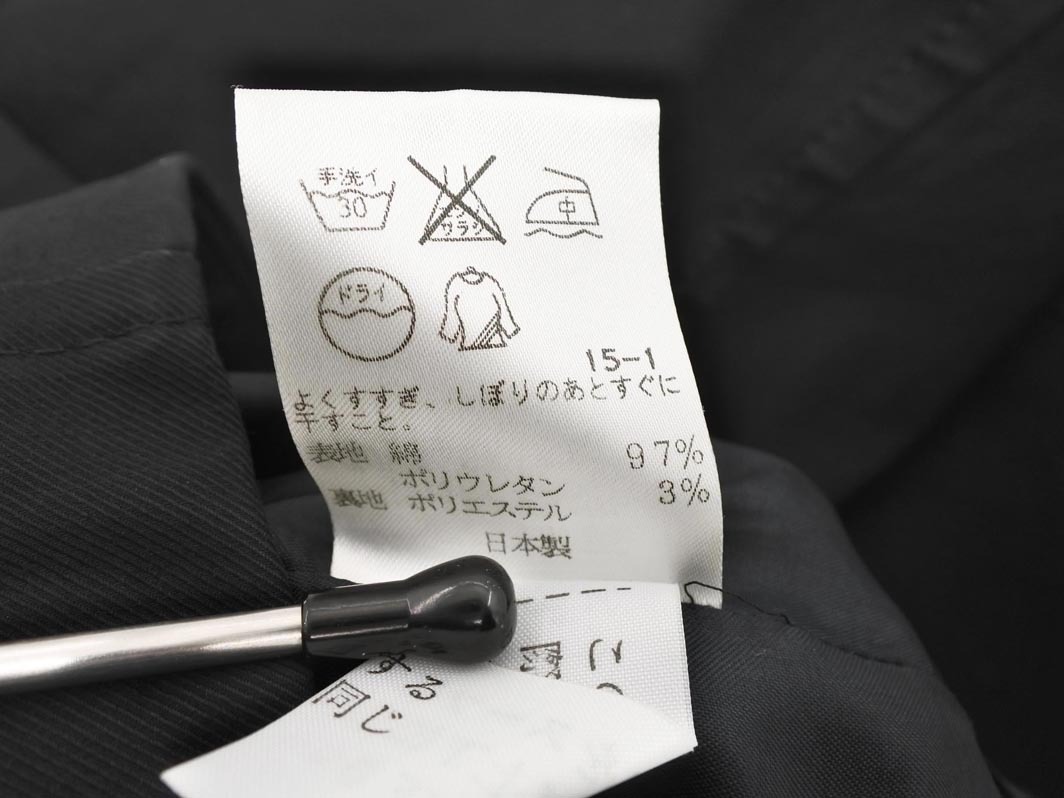 手洗イ
30
エンソ
サラシ
中
ドライ
15-1
よくすすぎ、しぼりのあとすぐに
干すこと。
表地 綿 97%
ポリウレタン 3%
裏地 ポリエステル
日本製
する
同じ